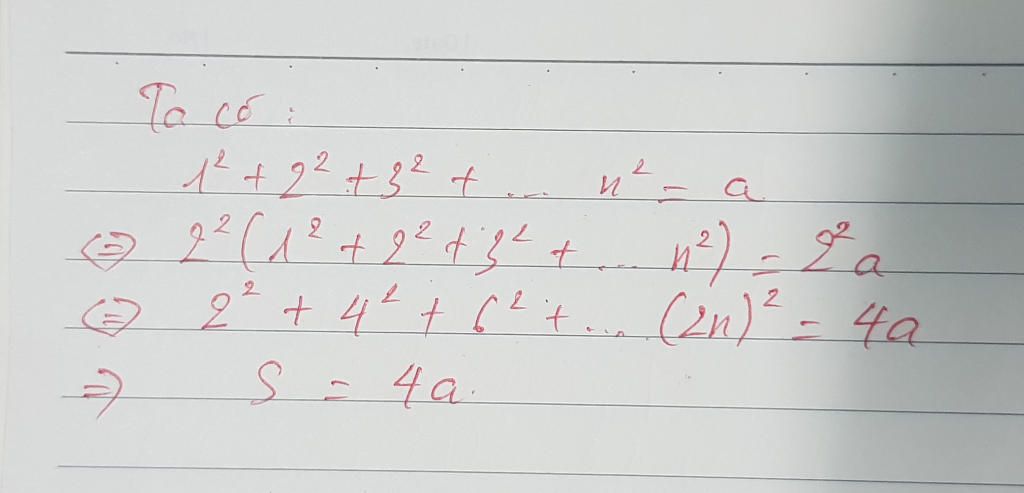 Ta có :
1² + 2² + 3² + ... n² = a
⇔ 2² ( 1² + 2² + 3² + ... n² ) = 2²a
⇔ 2² + 4² + 6² + ... (2n)² = 4a
⇒ S = 4a.